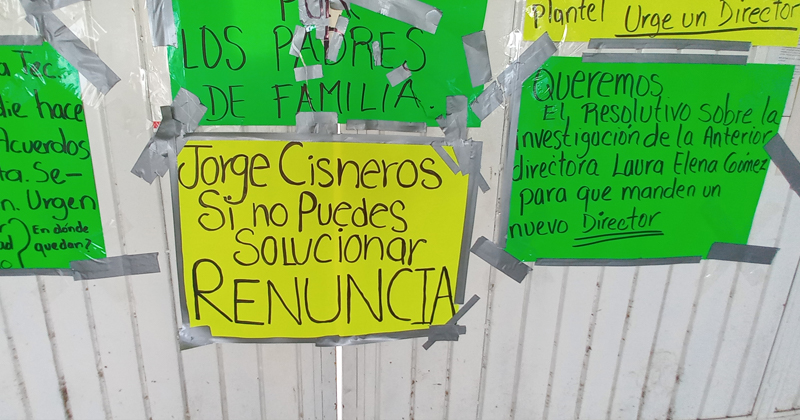 a Tec..
die hace
Acuerdos
ta. Se-
n. Urgen
En dónde
ad quedan?
POR
LOS PADRES
DE FAMILIA.
Jorge Cisneros
Si no Puedes
Solucionar
RENUNCIA
plantel Urge un Director
Queremos
El Resolutivo sobre la
investigación de la Anterior
directora Laura Elena Gomez
para que manden un
nuevo Director